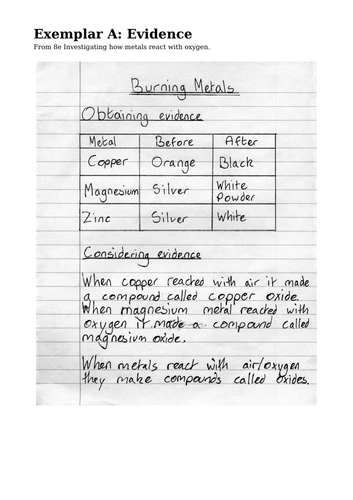 Exemplar A: Evidence
From 8e Investigating how metals react with oxygen.
Burning Metals
Obtaining evidence
Metal Before After
Copper Orange Black
Magnesium Silver White Powder
Zinc Silver White
Considering evidence
When copper reacted with air it made
a compound called copper oxide.
When magnesium metal reacted with
oxygen it made a compound called
magnesium oxide.
When metals react with air/oxygen
they make compounds called oxides.